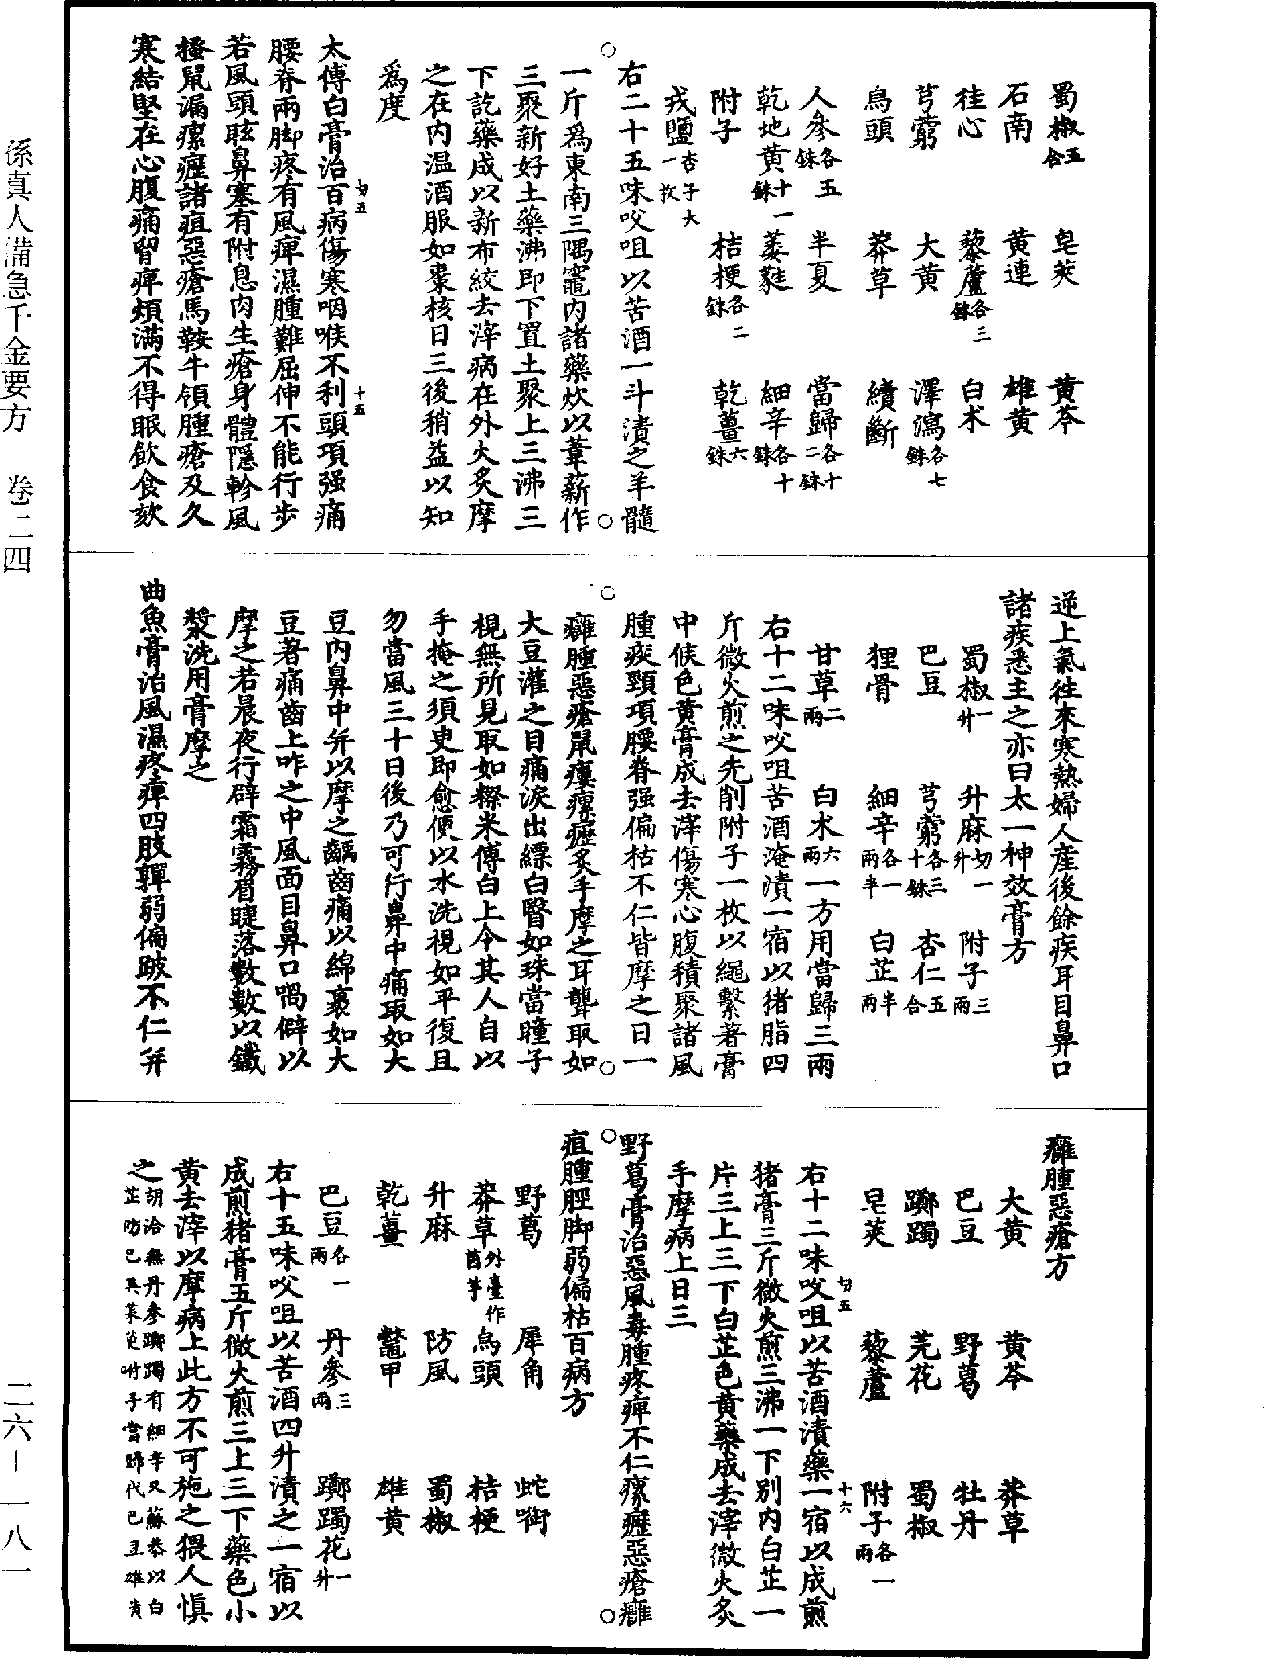 蜀椒五合　皂莢　黃芩
石南　黃連　雄黃
桂心　藜蘆各三銖　白朮
芎藭　大黃　澤瀉各七銖
烏頭　莽草　續斷
人參各五銖　半夏　當歸各十二銖
乾地黃十一銖　葳蕤　細辛各十銖
附子　桔梗各二銖　乾薑六銖
戎鹽杏子大一枚
右二十五味㕮咀以苦酒一斗漬之羊髓
一斤爲東南三隅竈內諸藥炊以葦薪作
三聚新好土藥沸即下置土聚上三沸三
下訖藥成以新布絞去滓病在外火炙摩
之在內温酒服如棗核日三後稍益以知
爲度
太傅白膏治百病傷寒咽喉不利頭項强痛
腰脊兩脚疼有風痺濕腫難屈伸不能行步
若風頭眩鼻塞有附息肉生瘡身體隱軫風
搔鼠漏瘰癧諸疽惡瘡馬鞍牛領腫瘡及久
寒結堅在心腹痛胷痺煩滿不得眠飲食欬
逆上氣往來寒熱婦人產後餘疾耳目鼻口
諸疾悉主之亦曰太一神效膏方
蜀椒一升　升麻切一升　附子三兩
巴豆　芎藭各三十銖　杏仁五合
狸骨　細辛各一兩半　白芷半兩
甘草二兩　白朮六兩一方用當歸三兩
右十二味㕮咀苦酒淹漬一宿以猪脂四
斤微火煎之先削附子一枚以繩繫著膏
中候色黃膏成去滓傷寒心腹積聚諸風
腫疾頸項腰脊强偏枯不仁皆摩之日一
癰腫惡瘡鼠瘻瘰癧炙手摩之耳聾取如
大豆灌之目痛淚出縹白瞖如珠當瞳子
視無所見取如穄米傅白上令其人自以
手掩之須臾即愈便以水洗視如平復且
勿當風三十日後乃可行鼻中痛取如大
豆內鼻中并以摩之齲齒痛以綿裹如大
豆著痛齒上咋之中風面目鼻口喎僻以
摩之若晨夜行辟霜霧眉睫落數數以鐵
漿洗用膏摩之
曲魚膏治風濕疼痺四肢軃弱偏跛不仁并
癰腫惡瘡方
大黃　黃芩　莽草
巴豆　野葛　牡丹
躑躅　芫花　蜀椒
皂莢　藜蘆　附子各一兩
右十二味㕮咀以苦酒漬藥一宿以成煎
猪膏三斤微火煎三沸一下別內白芷一
片三上三下白芷色黃藥成去滓微火炙
手摩病上日三
野葛膏治惡風毒腫疼痺不仁瘰癧惡瘡癰
疽腫脛脚弱偏枯百病方
野葛　犀角　蛇銜
莽草外臺作茵芋　烏頭　桔梗
升麻　防風　蜀椒
乾薑　鱉甲　雄黃
巴豆各一兩　丹參三兩　躑躅花一升
右十五味㕮咀以苦酒四升漬之一宿以
成煎猪膏五斤微火煎三上三下藥色小
黃去滓以摩病上此方不可施之猥人慎
之胡洽無丹參躑躅有細辛又蘇恭以白芷防己吳茱萸附子當歸代巴豆雄黃
切五
十五
切五
十六
孫真人備急千金要方　卷二四
二六－一八一